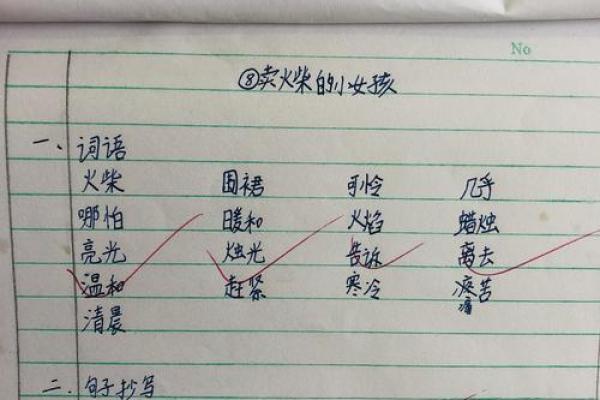 No
⑧卖火柴的小女孩
一、词语
火柴 围裙 可怜 几乎
哪怕 暖和 火焰 蜡烛
亮光 烛光 告诉 离去
温和 赶紧 寒冷 疼苦
痛
清晨
二、句子抄写